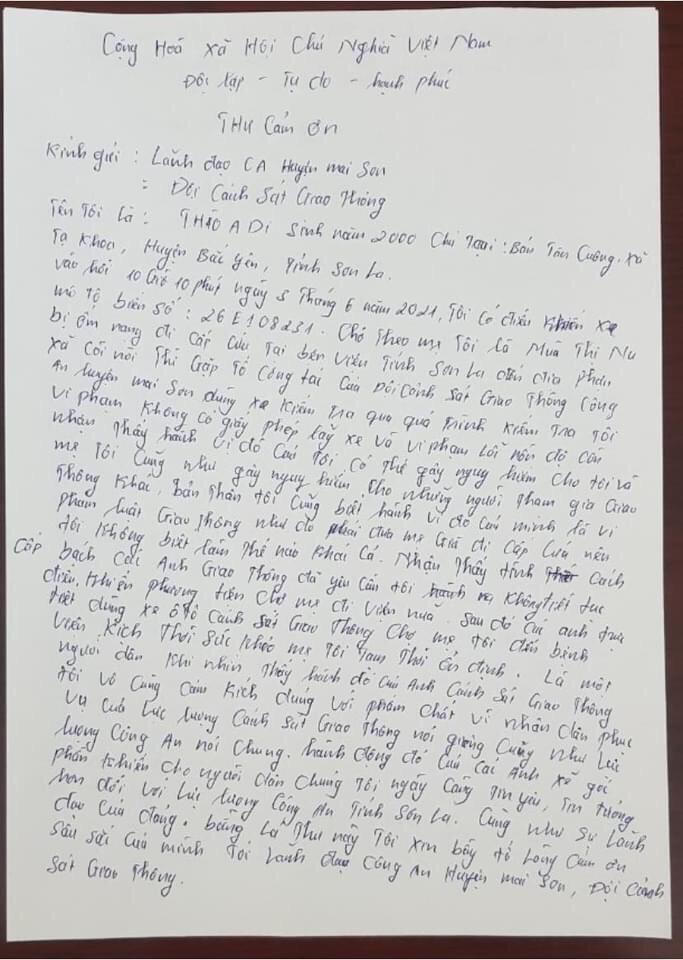 Cộng Hoá xã Hội Chủ Nghĩa Việt Nam
Độc lập - Tự do - hạnh phúc
THƯ Cảm ơn
Kính gửi : Lãnh đạo CA Huyện mai Sơn
= Đội Cảnh Sát Giao Thông
Tên Tôi là : THÀO A Di Sinh năm 2000 Chú Tại : Bản Tân Cuông. xã
Tạ Khoa, Huyện Bắc yên, Tỉnh Sơn La.
vào hồi 10 Giờ 10 phút ngày 5 Tháng 6 năm 2021, Tôi có điều khiển xe
mô tô biển số : 26E108231. Chở Theo mẹ Tôi là Mùa Thị Nu
bị ốm nặng đi Cấp Cứu Tại bên viện Tỉnh Sơn La đến địa phận
xã Cồi nòi Thì Gặp Tổ Công tác Của Đội Cảnh Sát Giao Thông Công
An huyện mai Sơn dừng xe Kiểm Tra qua quá Trình Kiểm Tra Tôi
vi phạm Không có giấy phép lấy xe và vi phạm lỗi nồn độ cồn
nhận Thấy hành vi đó Của Tôi có Thể gây nguy hiểm Cho tôi và
mẹ Tôi Cũng như gây nguy hiểm Cho những người Tham gia Giao
Thông Khác, Bản Thân tôi Cũng biết hành vi đó Của mình là vi
phạm luật Giao Thông như do phải đưa mẹ Già đi Cấp Cứu nên
tôi Không biết làm Thế nào Khác Cả. Nhận Thấy tình Cách
Cấp bách Các Anh Giao Thông đã yêu Cần tôi Không tiết tục
điều khiển phương tiện Chở mẹ đi viện nữa. Sau đó Các anh trực
tiết dùng xe ô tô Cảnh Sát Giao Thông Chở mẹ tôi đến bệnh
viện Kịch Thời Sức Khỏe mẹ Tôi Tạm Thời ổn định. Là một
người dân Khi nhìn Thấy hành đó Của Anh Cảnh Sát Giao Thông
tôi vô Cùng Cảm Kích dúng Với phẩm Chất vì nhân dân phục
vụ Của lực lượng Cảnh Sát Giao Thông nói giêng Cũng như lực
lượng Công An nói Chung. hành động đó Của Các Anh xẽ góp
phần khiến Cho người dân Chúng Tôi ngày Càng Tin yêu, Tin tưởng
hơn đối với Lực lượng Công An Tỉnh Sơn La. Cũng như Sự Lãnh
đạo Của đảng. bằng Lá Thư này Tôi xin bày tỏ Lòng Cảm ơn
Sâu sắc Của mình Tới Lãnh đạo Công An Huyện mai Sơn, Đội Cảnh
Sát Giao Thông.